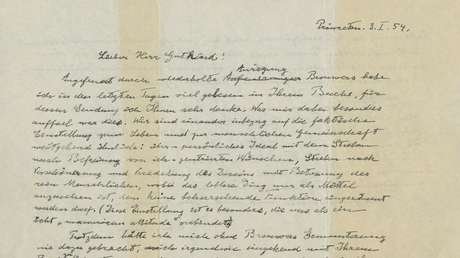 Princeton. 3. I. 54.
Lieber Herr Gutkind!
Anregung
Angefeuert durch wiederholte Brouwers habe
ich in den letzten Tagen viel gelesen in Ihrem Buche, für
dessen Sendung ich Ihnen sehr danke. Was mir dabei besonders
auffiel war dies. Wir sind einander inbezug auf die faktische
Einstellung zum Leben und zur menschlichen Gemeinschaft
weitgehend ähnlich: Ihr persönliches Ideal mit dem Streben
nach Befreiung von ich-zentrierten Wünschen, Streben nach
Verschönerung und Veredelung des Daseins mit Betonung des
rein Menschlichen, wobei das leblose Ding nur als Mittel
anzusehen ist, dem keine beherrschende Funktion eingeräumt
werden darf. (Diese Einstellung ist es besonders, die uns als ein
echt „unamerican attitude" verbindet)
Trotzdem hätte ich mich ohne Brouwers Ermunterung
nie dazu gebracht, mich irgendwie eingehend mit Ihrem